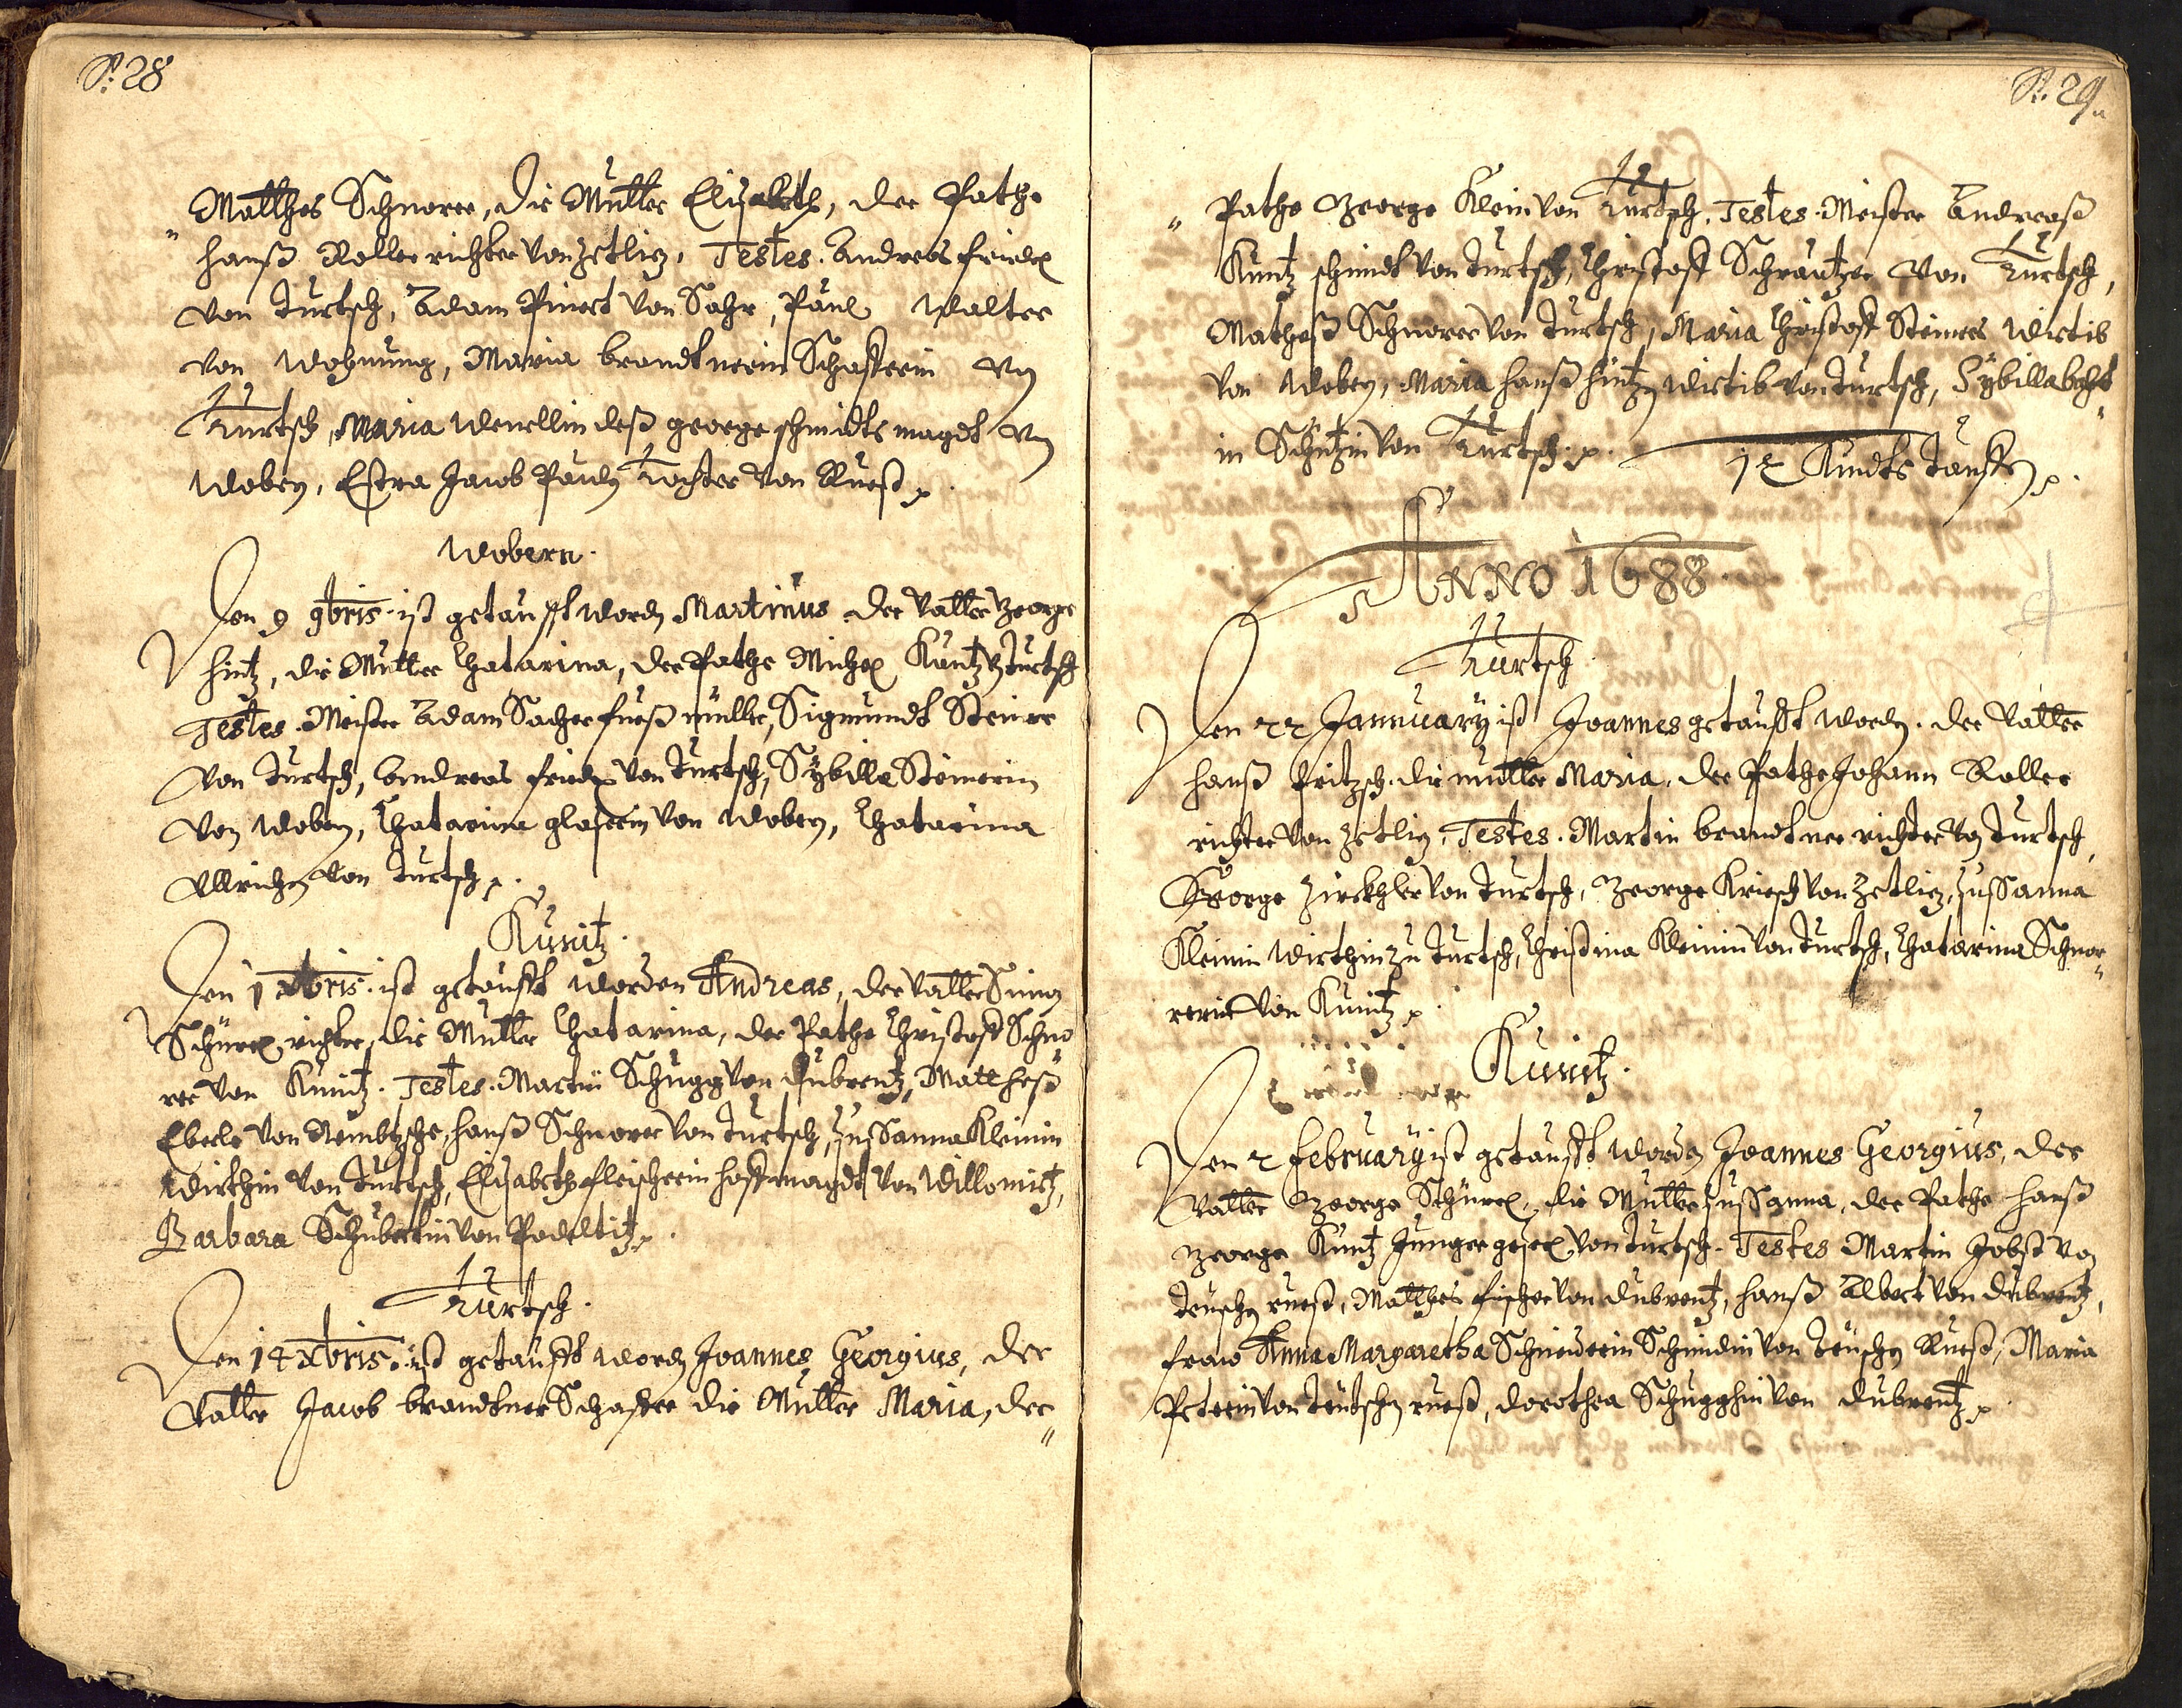 P. 28
Matthes Schnorer, die Mutter Elisabeth, der Pathe
Hanß Roller richter von Zetlig, Testes. Andreas friedl
von Turtsch, Adam Pinert von Sahr, Paul Walter
von Wohnung, Maria brandtnerin Schafferin von
Turtsch, Maria Wenellin deß george schmidts magdt von
Wobern, Estra Jacob Pauls Tochter von Ruest
Wobern.
Den 9 9bris. ist getaufft wordn Martinus der Vatter George
Hintz, die Mutter Chatarina, der Pathe Michel Kuntz v Turtsch
Testes. Meister Adam Sacher fueß müller, Sigmundt Steiner
von Turtsch, Andreas friedl von Turtsch, Sÿbilla Steinerin
von Wobern, Chatarina glaserin von Wobern, Chatarina
Ullrichin von Turtsch
Kunitz.
Den 1 Xbris. ist getaufft worden Andreas, der Vatter Simon
Schürel, richter, die Mutter Chatarina, der Pathe Christoff Schno
rer von Kunitz. Testes. Martin Schugg von Dubrentz, Mattheß
Eberle von Nembtsche, Hanß Schnorer von Turtsch, Zussanna Kleinin
Wirthin von Turtsch, Elisabeth fleischerin hoffmagdt von Willomitz,
Barbara Schubertin von Podeltitz
Turtsch.
Den 14 Xbris. ist getaufft wordn Joannes Georgius, der
Vatter Jacob brandtner Schaffer die Mutter Maria, der
P. 29
Pathe George Klein von Turtsch. Testes. Meister Andreaß
Kuntz schmidt von Turtsch, Christoff Schräntzer von Turtsch,
Matheß Schnorer von Turtsch, Maria Christoff Steiners Wittib
von Wobern, Maria Hanß Hintzn Wittib von Turtsch, Sÿbilla
in Schützin von Turtsch.
12 Kindts Tauffn
ANNO 1688.
Turtsch
Den 22 Jannuarÿ ist Joannes getaufft wordn. der Vatter
Hanß fritzsch. die mutter Maria. der Pathe Johann Roller
richter von Zetlig, Testes. Martin brandtner richter von Turtsch,
George Zirckhler von Turtsch, George Kriesch von Zetlig, Zussanna
Kleinin Wirthin zu Turtsch, Christina Kleinin von Turtsch, Chatarina Schnor
rerin von Kunitz
Kunitz.
Den 2 Februarÿ ist getaufft wordn Joannes Georgius, der
Vatter George Schürel, die Mutter Zussanna, der Pathe Hanß
George Kuntz Junger gesel von Turtsch. Testes Martin Jobst von
Teuschn ruest, Matthes fischer von Dubrentz, Hanß Albert von Dubrentz,
fraw Anna Margaretha Schneiderin Schmidin von Teuschn Ruest, Maria
Peterin von Teutschn ruest, Dorothea Schugghin von Dubrentz